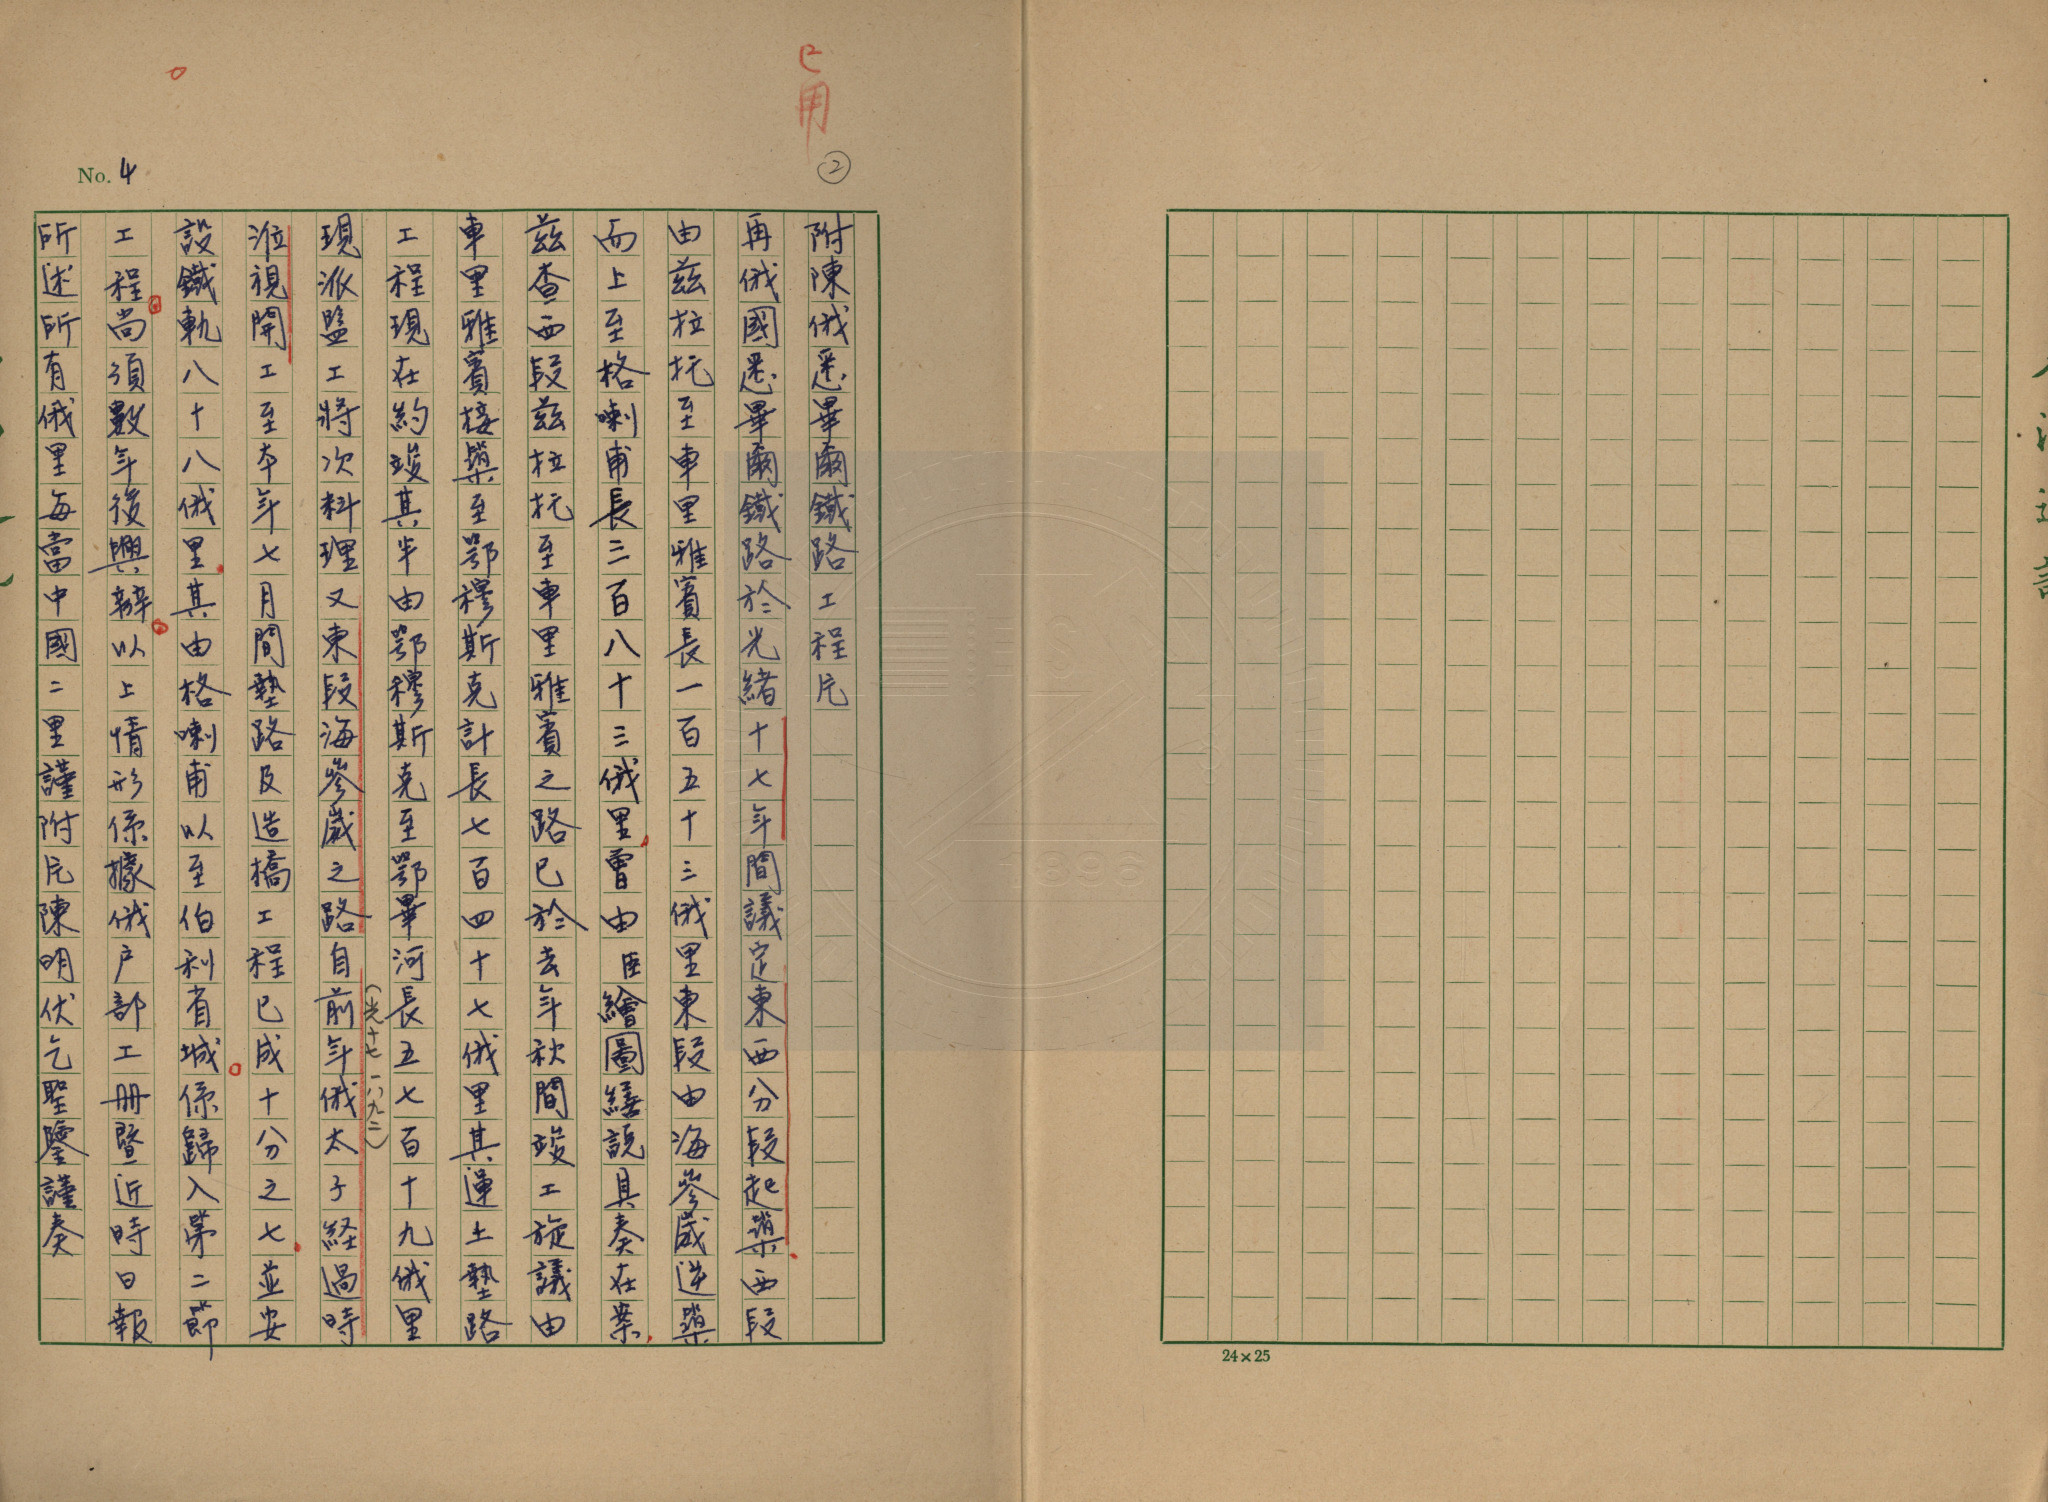 已用
②
No. 4
附陳俄悉畢爾鐵路工程片
再俄國悉畢爾鐵路於光緒十七年間議定東西分段起築西段
由茲拉托至車里雅賓長一百五十三俄里東段由海參崴迆築
而上至格喇甫長三百八十三俄里曾由臣繪圖繕說具奏在案
茲查西段茲拉托至車里雅賓之路已於去年秋間竣工旋議由
車里雅賓接築至鄂穆斯克計長七百四十七俄里其運土墊路
工程現在約竣其半由鄂穆斯克至鄂畢河長五七百十九俄里
現派監工將次料理又東段海參崴之路自前年俄太子経過時
(光十七 一八九二)
涖視開工至本年七月間墊路及造橋工程已成十分之七並安
設鐵軌八十八俄里其由格喇甫以至伯利省城係歸入第二節
工程尚須數年後興辦以上情形係據俄户部工册暨近時日報
所述所有俄里每當中國二里謹附片陳明伏乞聖鑒謹奏
24×25